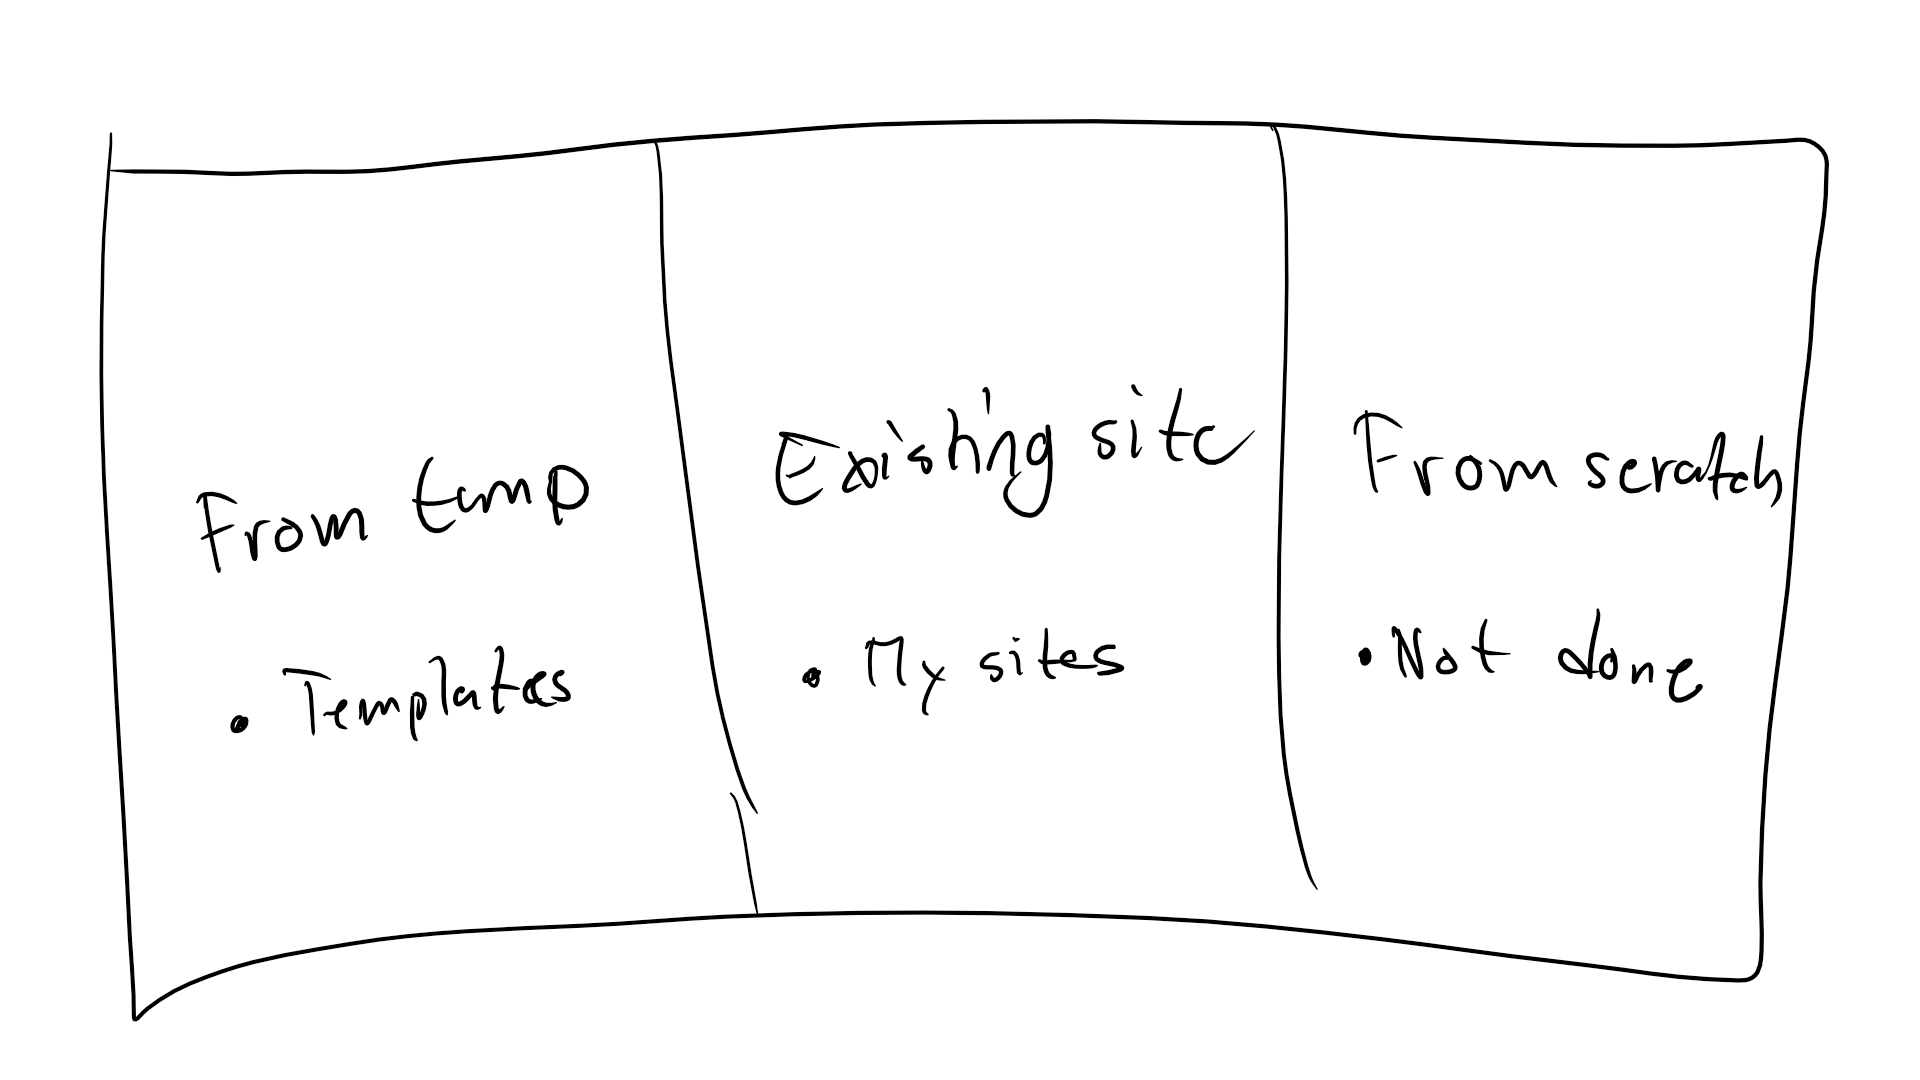 From temp
• Templates
Existing site
• My sites
From scratch
• Not done